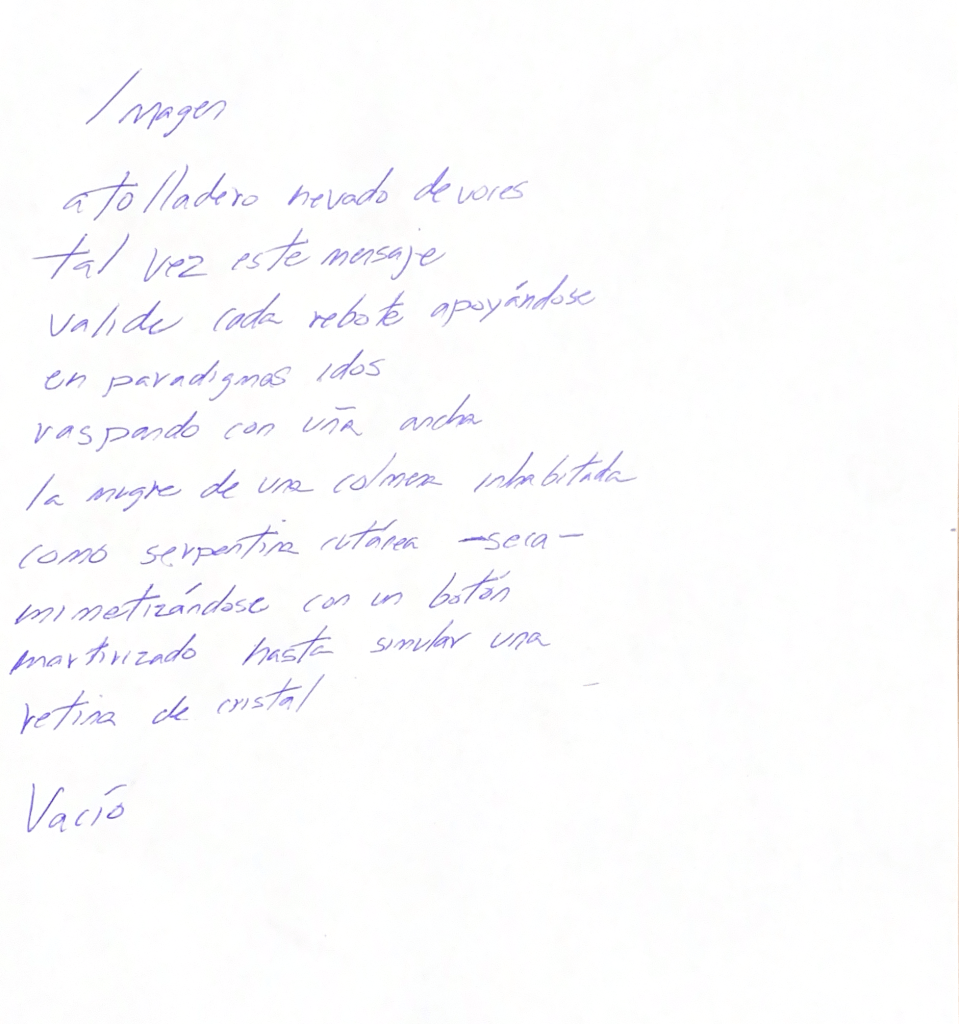 Imagen
atolladero nevado de voces
tal vez este mensaje
valide cada rebote apoyándose
en paradigmas idos
raspando con uña ancha
la mugre de una colmena inhabitada
como serpentina cutánea —seca—
mimetizándose con un botón
martirizado hasta simular una
retina de cristal
Vacío